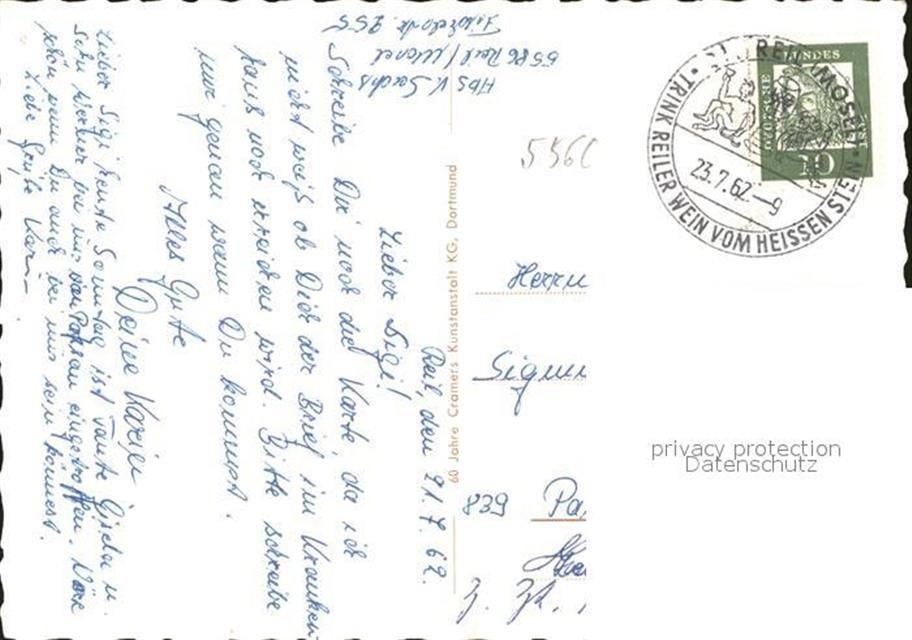 Reil, den 21.7.62.
Lieber Sigi!
Schreibe Dir noch die Karte, da ich
nicht weiß ob Dich der Brief im Kranken
haus noch erreichen wird. Bitte schreibe
mir genau wann Du kommst.
Alles Gute
Deine Karin
Lieber Sigi heute Sonntag ist Tante Gisela u.
Sohn Werner bei uns von Passau eingetroffen. Wäre
schön wenn Du auch bei uns sein könntest.
Liebe Grüße Karin
Abs. K. Sachs
5586 Reil/Mosel
255
60 Jahre Cramers Kunstanstalt KG, Dortmund
REIL (MOSEL)
TRINK REILER WEIN VOM HEISSEN STEIN
23.7.62.-9
DEUTSCHE BUNDES
10
Herrn
Sigmu
839 Pa
z. Zt.
privacy protection
Datenschutz